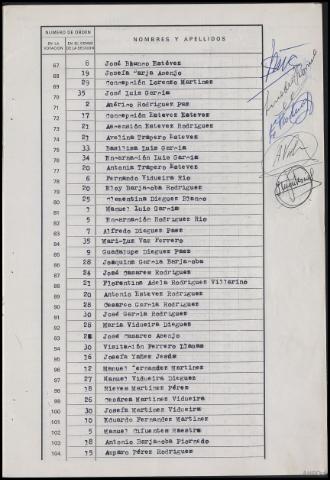 NUMERO DE ORDEN
EN LA VOTACION
EN EL CENSO DE LA SECCION
NOMBRES Y APELLIDOS
67 6 José Blanco Estévez
68 19 Josefa Barja Asenjo
69 29 Concepción Lorenzo Martinez
70 35 José Luis Garcia
71 2 Américo Rodriguez Paz
72 17 Concepción Estevez Estevez
73 21 Asunsión Estevez Rodriguez
74 21 Avelina Trapero Estevez
75 33 Basilisa Luis Garcia
76 34 Encarnación Luis Garcia
77 20 Antonia Trapero Estevez
78 6 Fernando Vidueira Rio
79 20 Eloy Barjacoba Rodriguez
80 25 Clementina Dieguez Blanco
81 7 Manuel Luis Garcia
82 5 Encarnación Rodriguez Rio
83 7 Alfredo Dieguez Paez
84 35 Mari-Luz Vaz Ferrero
85 9 Guadalupe Dieguez Paez
86 28 Joaquina Garcia Barjacoba
87 24 José Casares Rodriguez
88 21 Florentina Adela Rodriguez Villarino
89 20 Antonio Estevez Rodriguez
90 28 Cesareo Garcia Rodriguez
91 30 José Garcia Rodriguez
92 28 Maria Vidueira Dieguez
93 28 José Casares Asenjo
94 30 Visitación Ferrero Llamas
95 16 Josefa Yañez Jesús
96 12 Manuel Fernandez Martinez
97 27 Manuel Vidueira Dieguez
98 18 Nieves Martinez Pérez
99 26 Cesárea Martinez Vidueira
100 30 Josefa Martinez Vidueira
101 10 Eduardo Fernandez Martinez
102 5 Manuel Cifuentes Maestra
103 18 Antonio Barjacoba Piornedo
104 15 Amparo Pérez Rodriguez